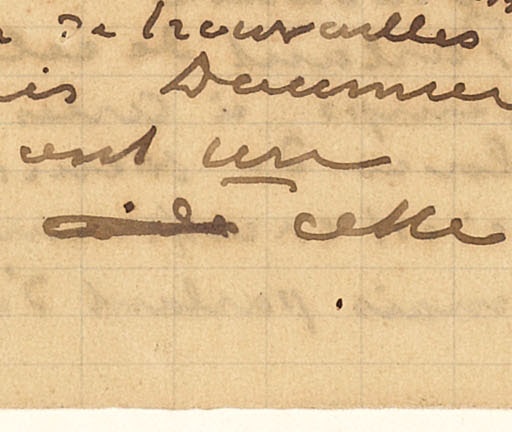 de trouvailles
Daumier
ont un
cette